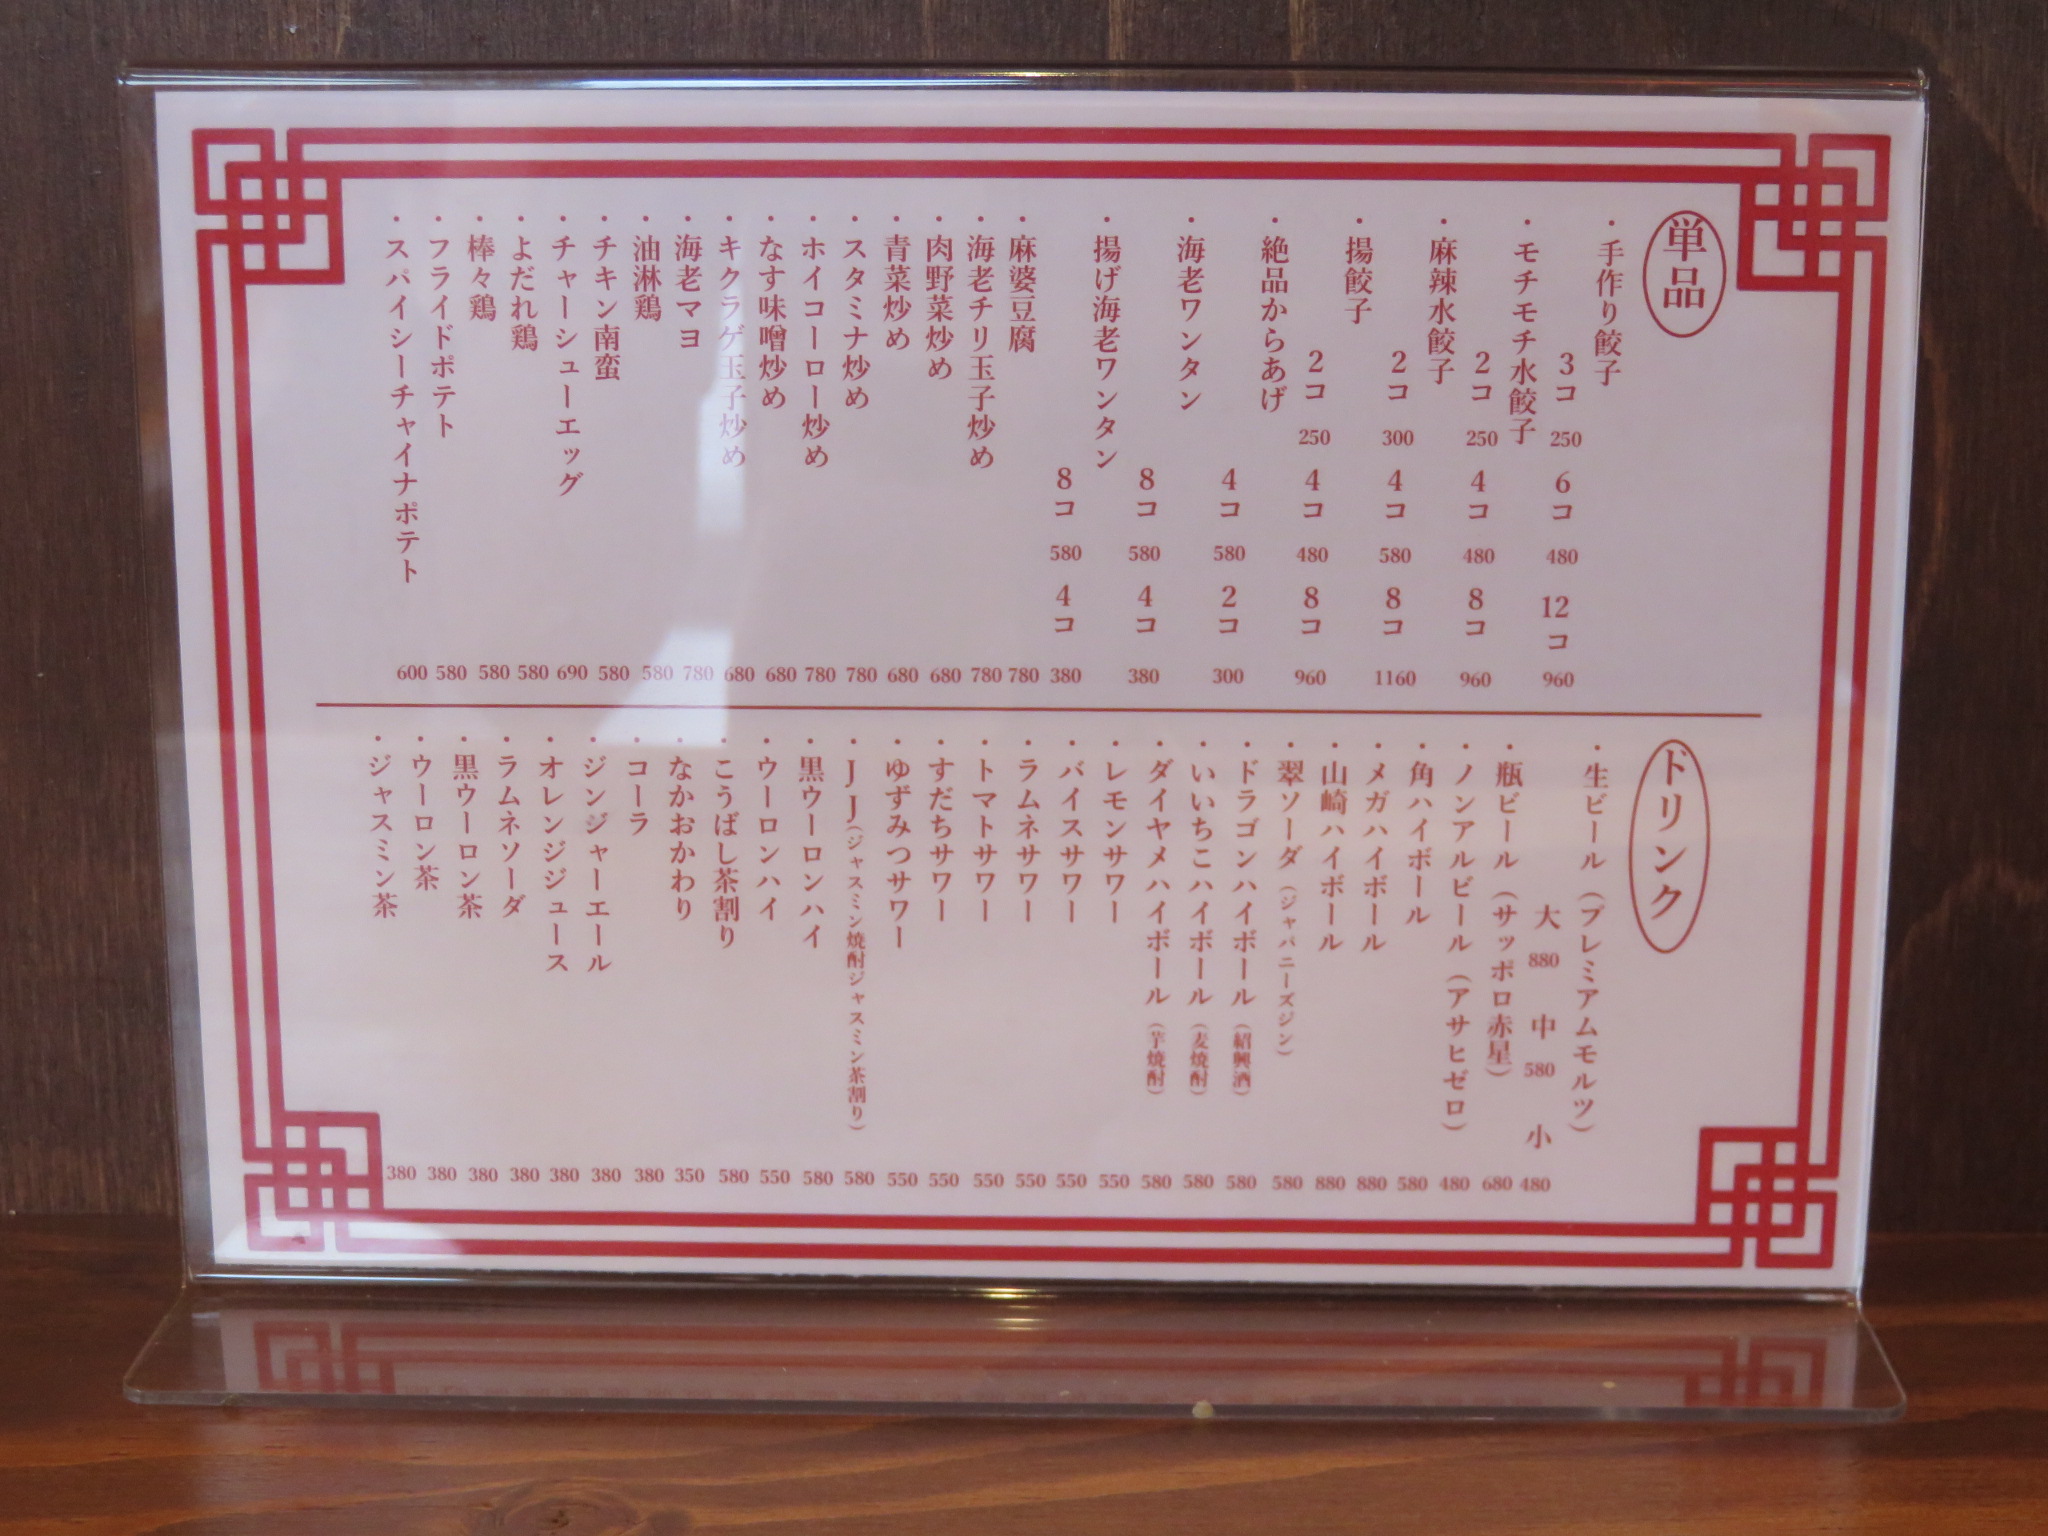 単品
・手作り餃子
3コ 250 6コ 480 12コ 960
・モチモチ水餃子
2コ 250 4コ 480 8コ 960
・麻辣水餃子
2コ 300 4コ 580 8コ 1160
・揚餃子
2コ 250 4コ 480 8コ 960
・絶品からあげ
4コ 580 2コ 300
・海老ワンタン
8コ 580 4コ 380
・揚げ海老ワンタン
8コ 580 4コ 380
・麻婆豆腐 780
・海老チリ玉子炒め 780
・肉野菜炒め 680
・青菜炒め 680
・スタミナ炒め 780
・ホイコーロー炒め 780
・なす味噌炒め 680
・キクラゲ玉子炒め 680
・海老マヨ 780
・油淋鶏 580
・チキン南蛮 580
・チャーシューエッグ 690
・よだれ鶏 580
・棒々鶏 580
・フライドポテト 580
・スパイシーチャイナポテト 600
ドリンク
・生ビール（プレミアムモルツ）
大 880 中 580 小 480
・瓶ビール（サッポロ赤星） 680
・ノンアルビール（アサヒゼロ） 480
・角ハイボール 580
・メガハイボール 880
・山崎ハイボール 880
・翠ソーダ（ジャパニーズジン） 580
・ドラゴンハイボール（紹興酒） 580
・いいちこハイボール（麦焼酎） 580
・ダイヤメハイボール（芋焼酎） 580
・レモンサワー 550
・バイスサワー 550
・ラムネサワー 550
・トマトサワー 550
・すだちサワー 550
・ゆずみつサワー 550
・ＪＪ（ジャスミン焼酎ジャスミン茶割り） 580
・黒ウーロンハイ 580
・ウーロンハイ 550
・こうばし茶割り 580
・なかおかわり 350
・コーラ 380
・ジンジャーエール 380
・オレンジジュース 380
・ラムネソーダ 380
・黒ウーロン茶 380
・ウーロン茶 380
・ジャスミン茶 380